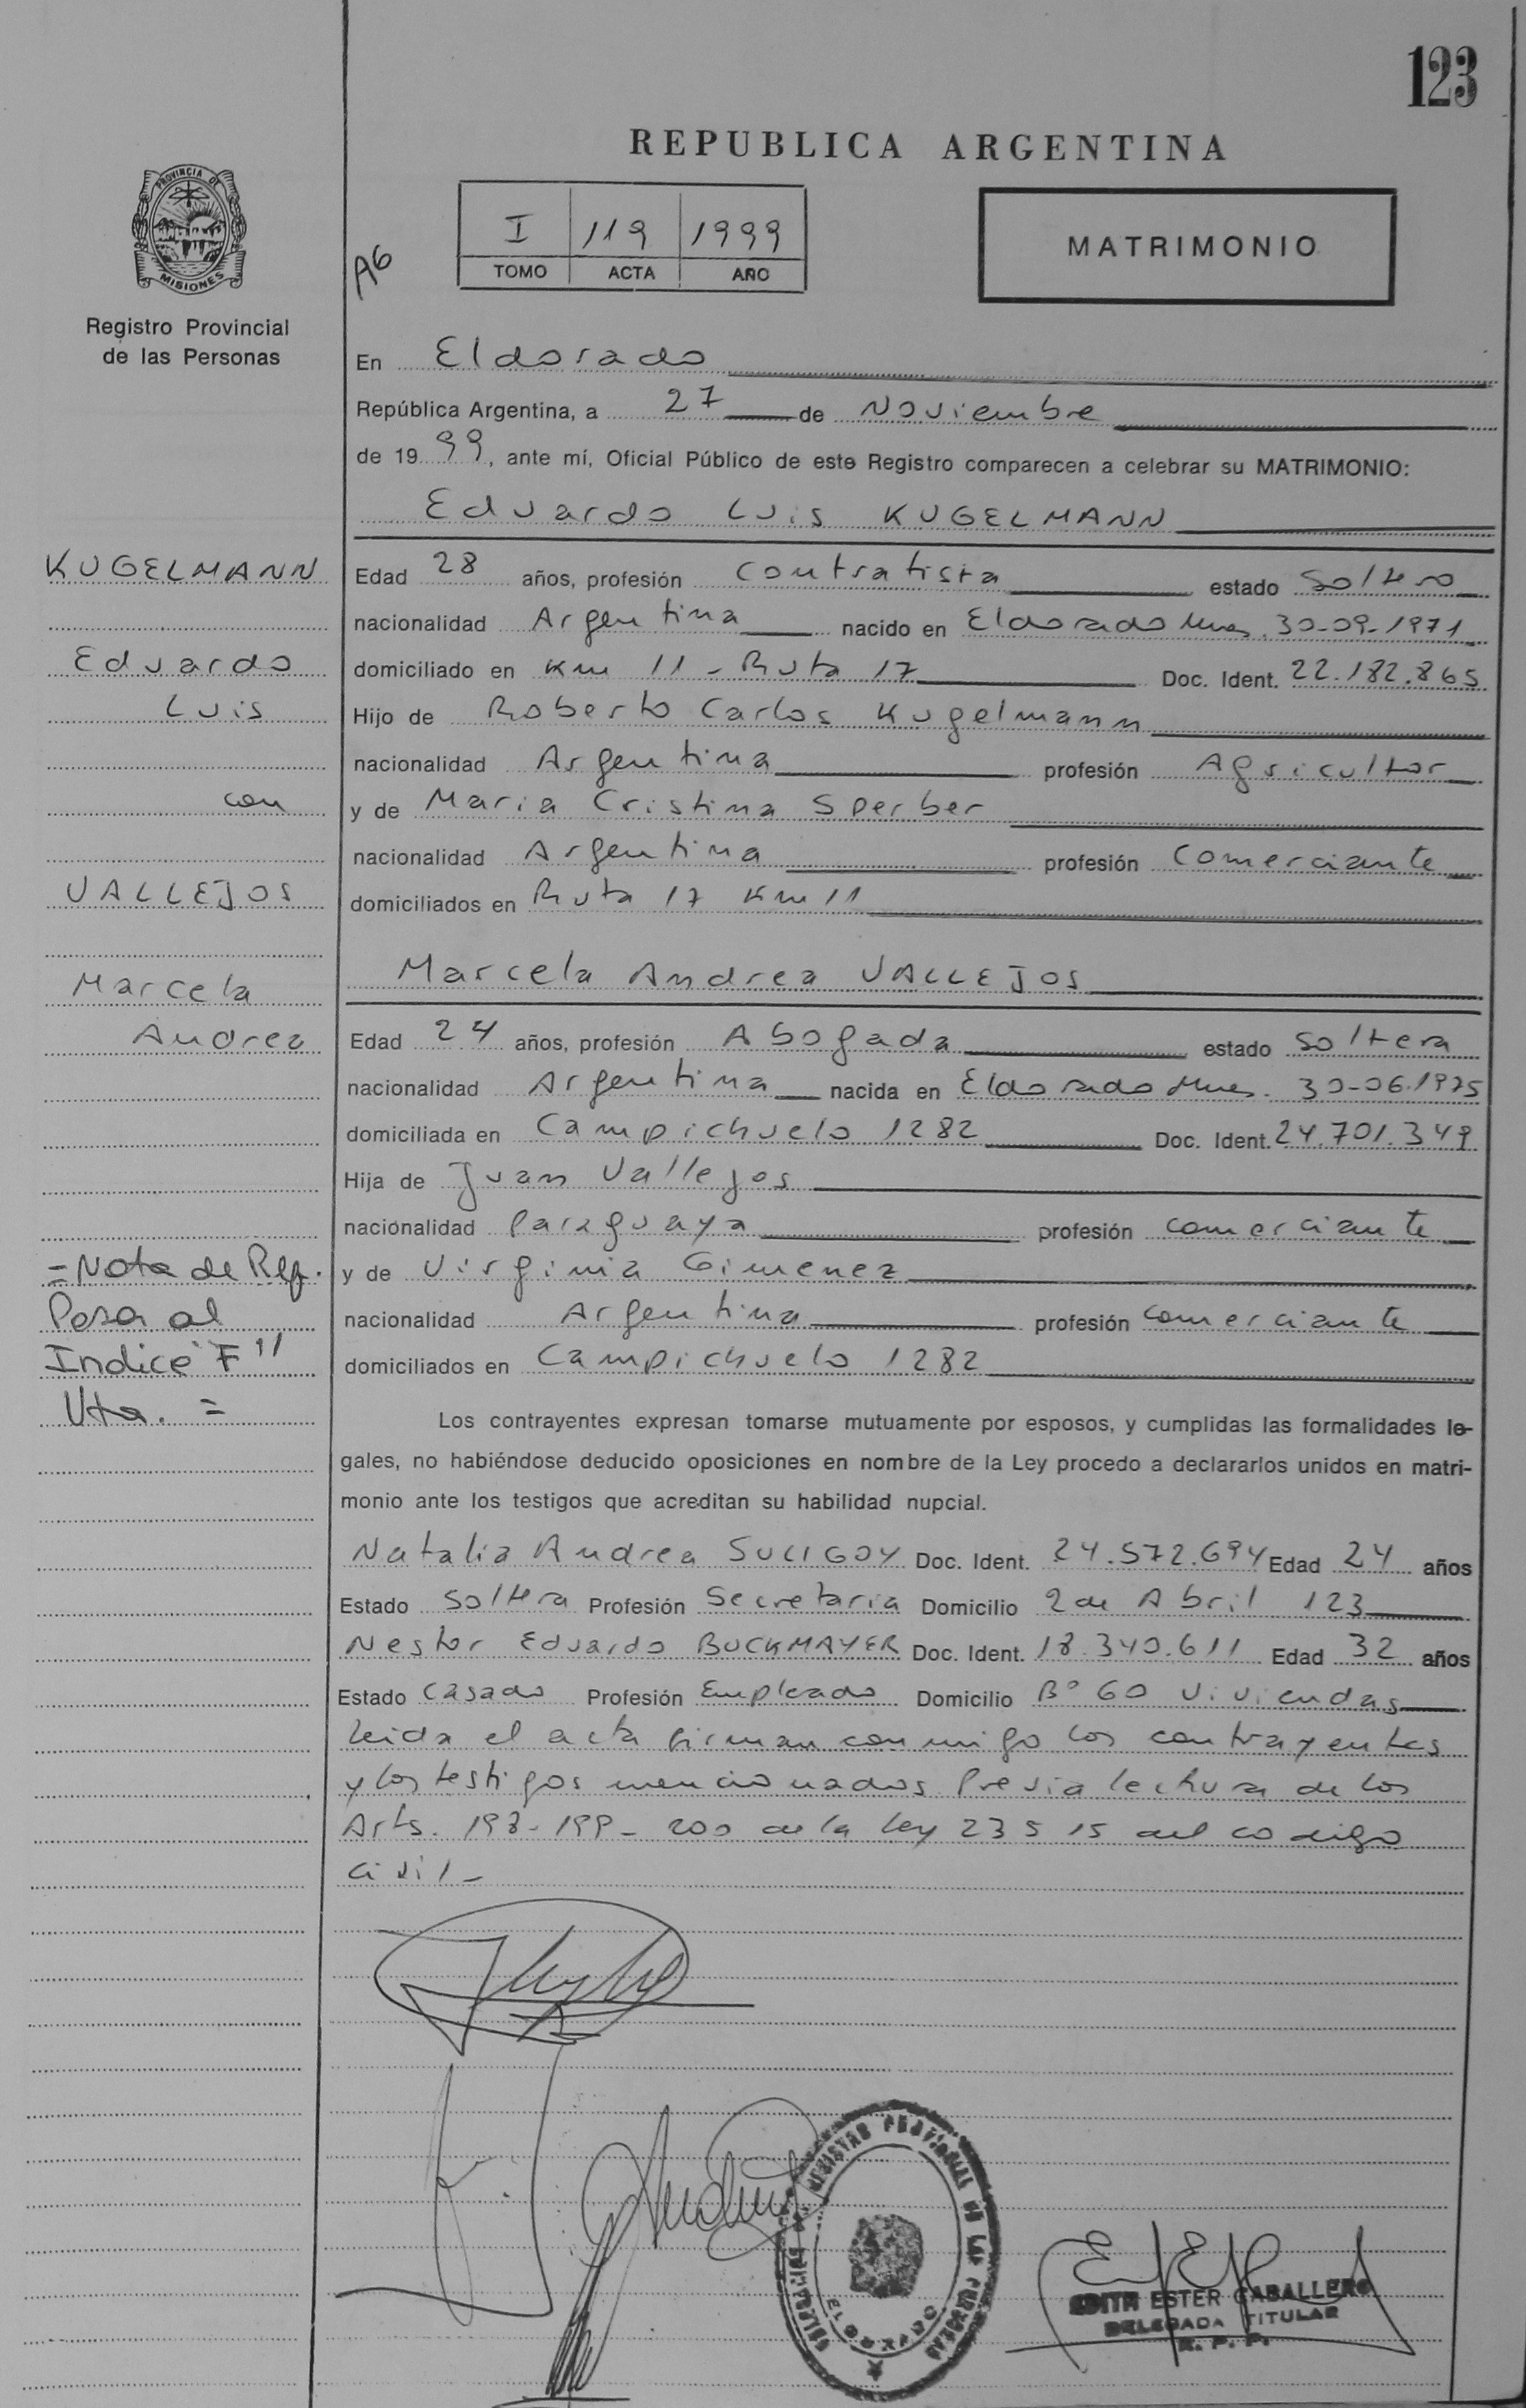 123
REPUBLICA ARGENTINA
PROVINCIA DE
MISIONES
Registro Provincial
de las Personas
A6
I 119 1999
TOMO ACTA AÑO
MATRIMONIO
En Eldorado
República Argentina, a 27 de Noviembre
de 19 99, ante mí, Oficial Público de este Registro comparecen a celebrar su MATRIMONIO:
Eduardo Luis KUGELMANN
KUGELMANN
Edad 28 años, profesión Contratista estado Soltero
nacionalidad Argentina nacido en Eldorado Mnes. 30-09-1971
Eduardo
domiciliado en Km 11 - Ruta 17 Doc. Ident. 22.182.865
Luis
Hijo de Roberto Carlos Kugelmann
nacionalidad Argentina profesión Agricultor
con
y de Maria Cristina Sperber
nacionalidad Argentina profesión Comerciante
VALLEJOS
domiciliados en Ruta 17 Km 11
Marcela
Marcela Andrea VALLEJOS
Andrea
Edad 24 años, profesión Abogada estado Soltera
nacionalidad Argentina nacida en Eldorado Mnes. 30-06-1975
domiciliada en Campichuelo 1282 Doc. Ident. 24.701.349
Hija de Juan Vallejos
nacionalidad Paraguaya profesión comerciante
= Nota de Ref.
y de Virginia Gimenez
Pasa al
nacionalidad Argentina profesión Comerciante
Indice "F"
domiciliados en Campichuelo 1282
Vta. =
Los contrayentes expresan tomarse mutuamente por esposos, y cumplidas las formalidades le-
gales, no habiéndose deducido oposiciones en nombre de la Ley procedo a declararlos unidos en matri-
monio ante los testigos que acreditan su habilidad nupcial.
Natalia Andrea SULIGOY Doc. Ident. 24.572.694 Edad 24 años
Estado Soltera Profesión Secretaria Domicilio 2 de Abril 123
Nestor Eduardo BUCKMAYER Doc. Ident. 18.340.611 Edad 32 años
Estado Casado Profesión Empleado Domicilio B° 60 Viviendas
Leida el acta firman conmigo los contrayentes
y los testigos mencionados. Previa lectura de los
Arts. 198-199-200 de la Ley 23515 del codigo
civil -
REGISTRO PROVINCIAL DE LAS PERSONAS
ELDORADO
EDITH ESTER CABALLERO
DELEGADA TITULAR
R. P. P.